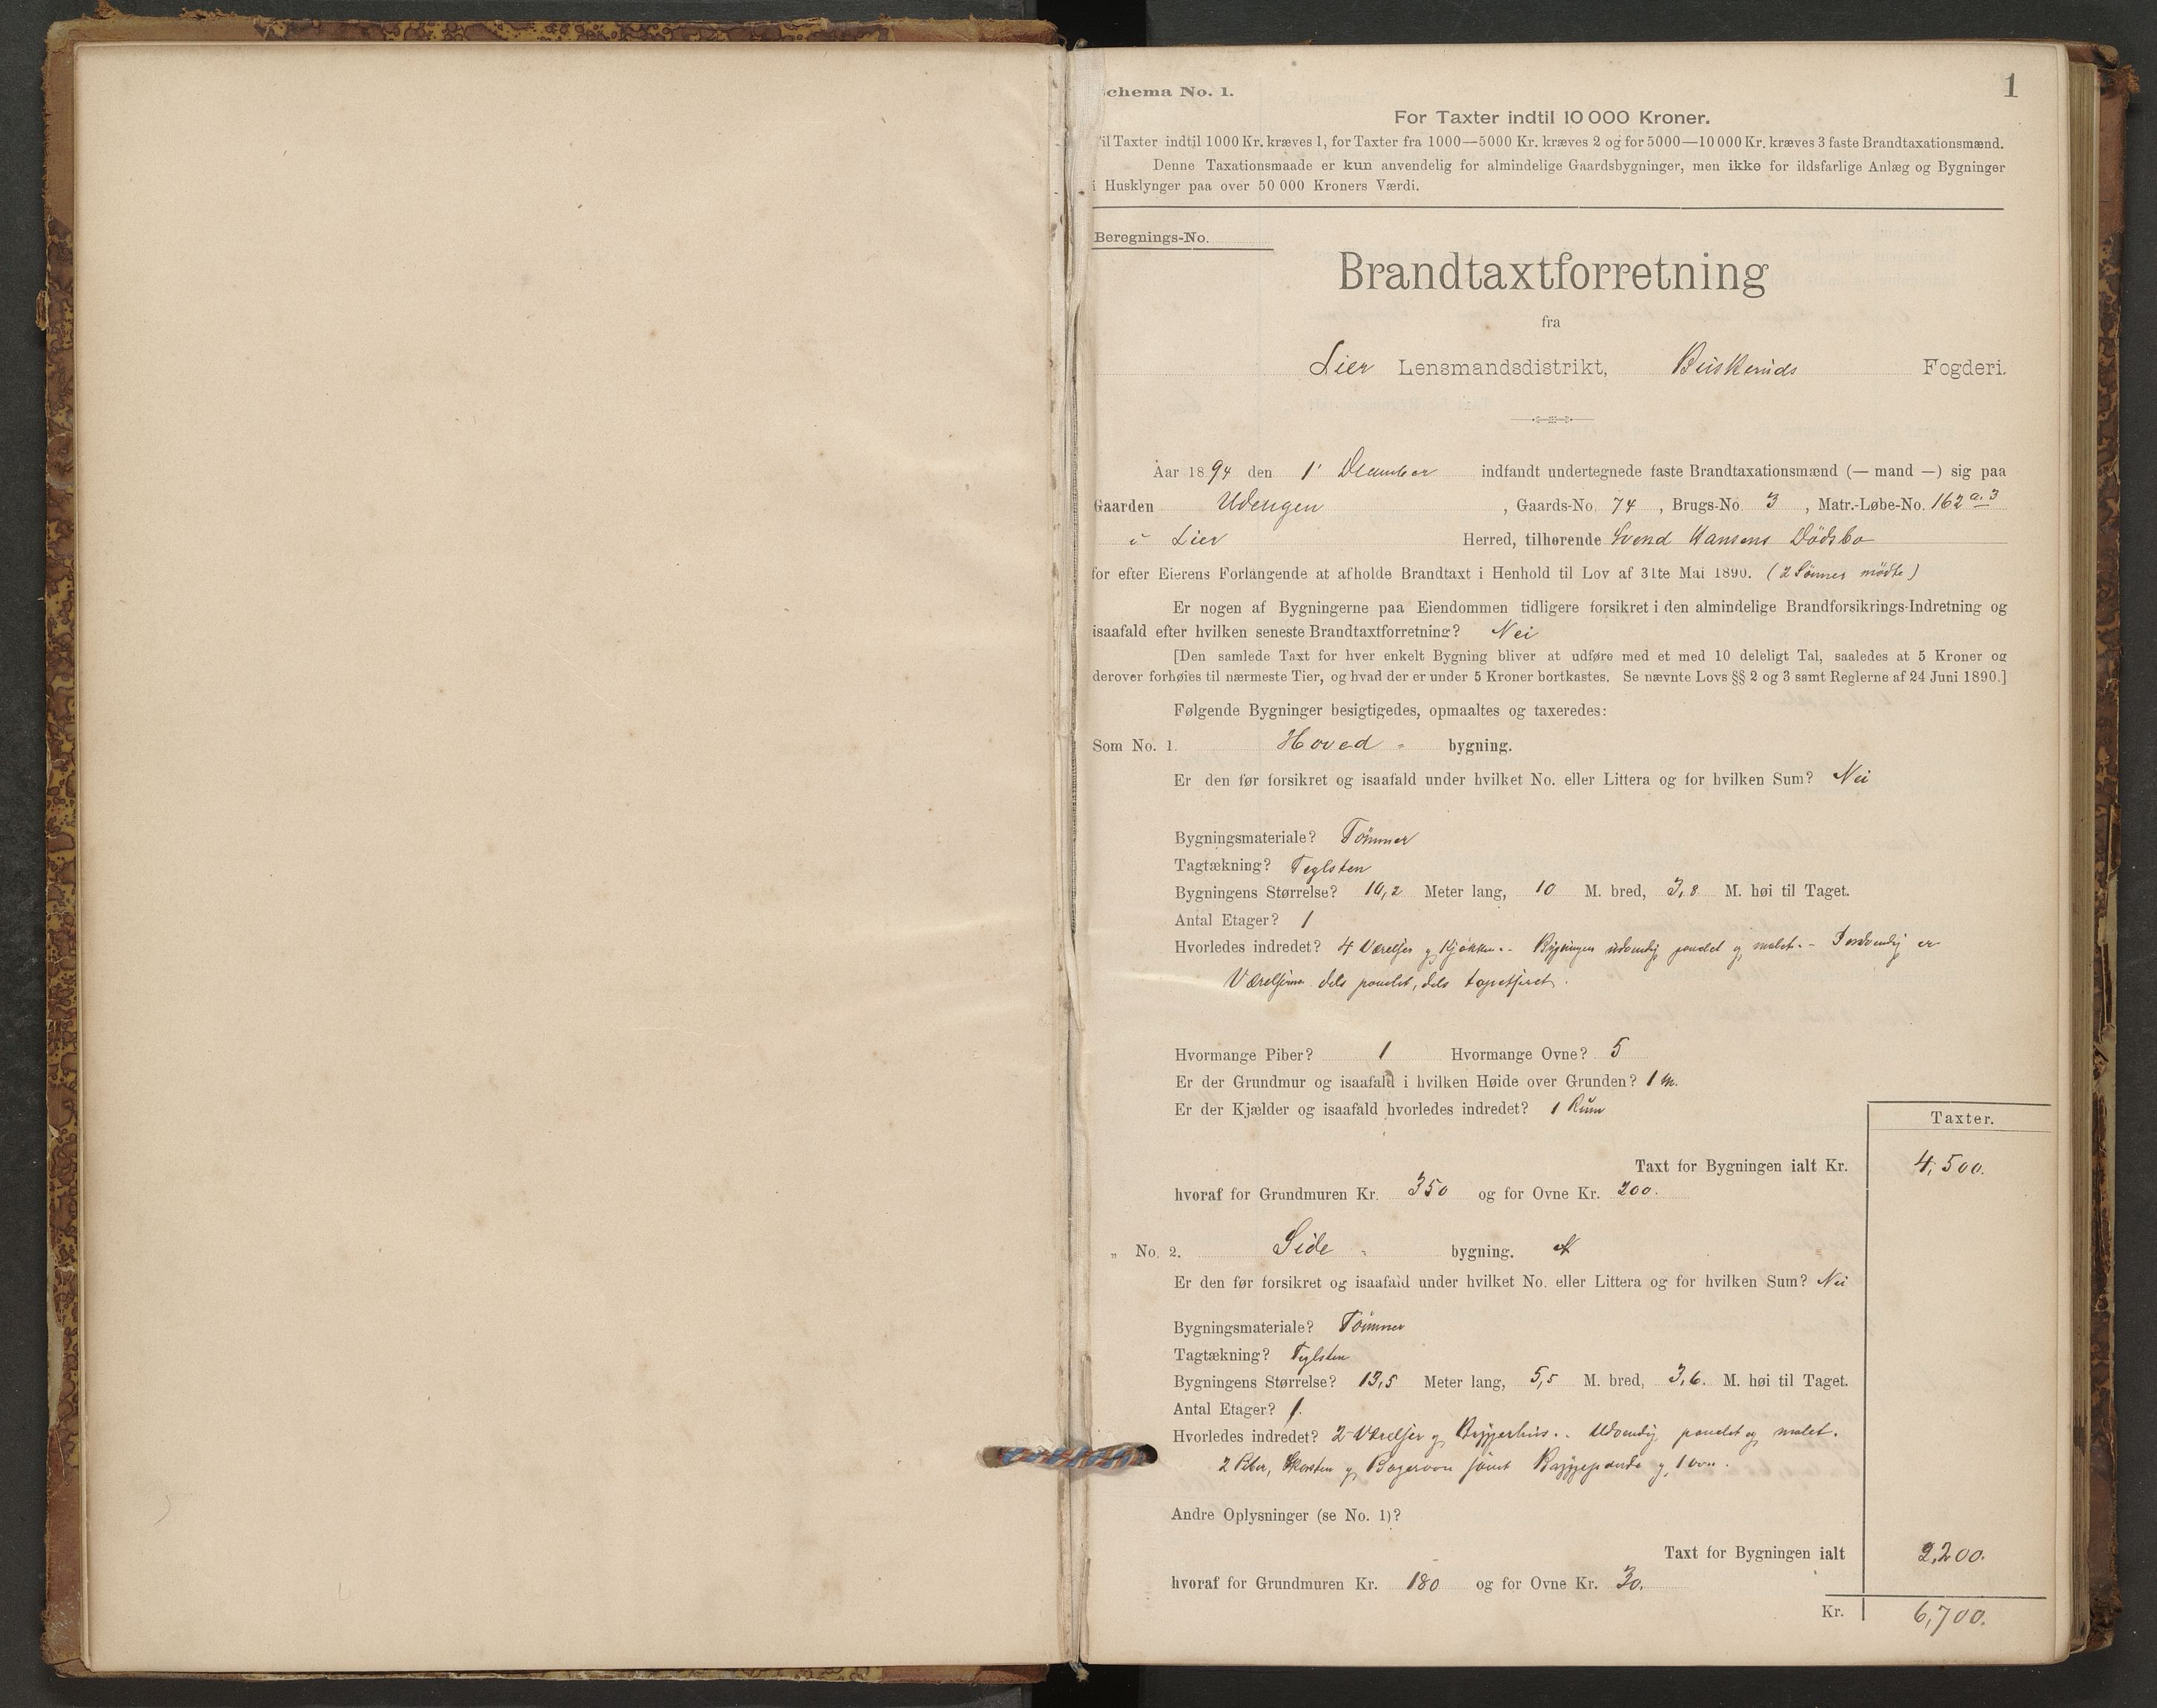 1
chema No. 1.
For Taxter indtil 10 000 Kroner.
il Taxter indtil 1000 Kr. kræves 1, for Taxter fra 1000—5000 Kr. kræves 2 og for 5000—10000 Kr. kræves 3 faste Brandtaxationsmænd.
Denne Taxationsmaade er kun anvendelig for almindelige Gaardsbygninger, men ikke for ildsfarlige Anlæg og Bygninger
i Husklynger paa over 50 000 Kroners Værdi.
Beregnings-No.
Brandtaxtforretning
fra
Lier Lensmandsdistrikt, Buskeruds Fogderi.
Aar 1894 den 1' December indfandt undertegnede faste Brandtaxationsmænd (— mand —) sig paa
Gaarden Udengen, Gaards-No. 74, Brugs-No. 3, Matr.-Løbe-No. 162 a. 3
i Lier Herred, tilhørende Svend Hansens Dödsbo
for efter Eierens Forlangende at afholde Brandtaxt i Henhold til Lov af 31te Mai 1890. (2 Sönner mödte)
Er nogen af Bygningerne paa Eiendommen tidligere forsikret i den almindelige Brandforsikrings-Indretning og
isaafald efter hvilken seneste Brandtaxtforretning? Nei
[Den samlede Taxt for hver enkelt Bygning bliver at udføre med et med 10 deleligt Tal, saaledes at 5 Kroner og
derover forhøies til nærmeste Tier, og hvad der er under 5 Kroner bortkastes. Se nævnte Lovs §§ 2 og 3 samt Reglerne af 24 Juni 1890.]
Følgende Bygninger besigtigedes, opmaaltes og taxeredes:
Som No. 1. Hoved - bygning.
Er den før forsikret og isaafald under hvilket No. eller Littera og for hvilken Sum? Nei
Bygningsmateriale? Tömmer
Tagtækning? Teglsten
Bygningens Størrelse? 10,2 Meter lang, 10 M. bred, 3,8 M. høi til Taget.
Antal Etager? 1
Hvorledes indredet? 4 Værelser og Kjøkken. - Bygningen udvendig panelet og malet. - Indvendig er
Værelserne dels panelet, dels tapetseret.
Hvormange Piber? 1 Hvormange Ovne? 5
Er der Grundmur og isaafald i hvilken Høide over Grunden? 1 m.
Er der Kjælder og isaafald hvorledes indredet? 1 Rum
Taxter.
Taxt for Bygningen ialt Kr. 4,500.
hvoraf for Grundmuren Kr. 350 og for Ovne Kr. 200.
„ No. 2. Side - bygning.
Er den før forsikret og isaafald under hvilket No. eller Littera og for hvilken Sum? Nei
Bygningsmateriale? Tömmer
Tagtækning? Teglsten
Bygningens Størrelse? 13,5 Meter lang, 5,5 M. bred, 3,6. M. høi til Taget.
Antal Etager? 1.
Hvorledes indredet? 2 Værelser og Bryggerhus. - Udvendig panelet og malet.
2 Piber, Skorsten og Bagerovn samt Bryggepande og 1 ovn.
Andre Oplysninger (se No. 1)?
Taxt for Bygningen ialt 2,200.
hvoraf for Grundmuren Kr. 180 og for Ovne Kr. 30.
Kr. 6,700.